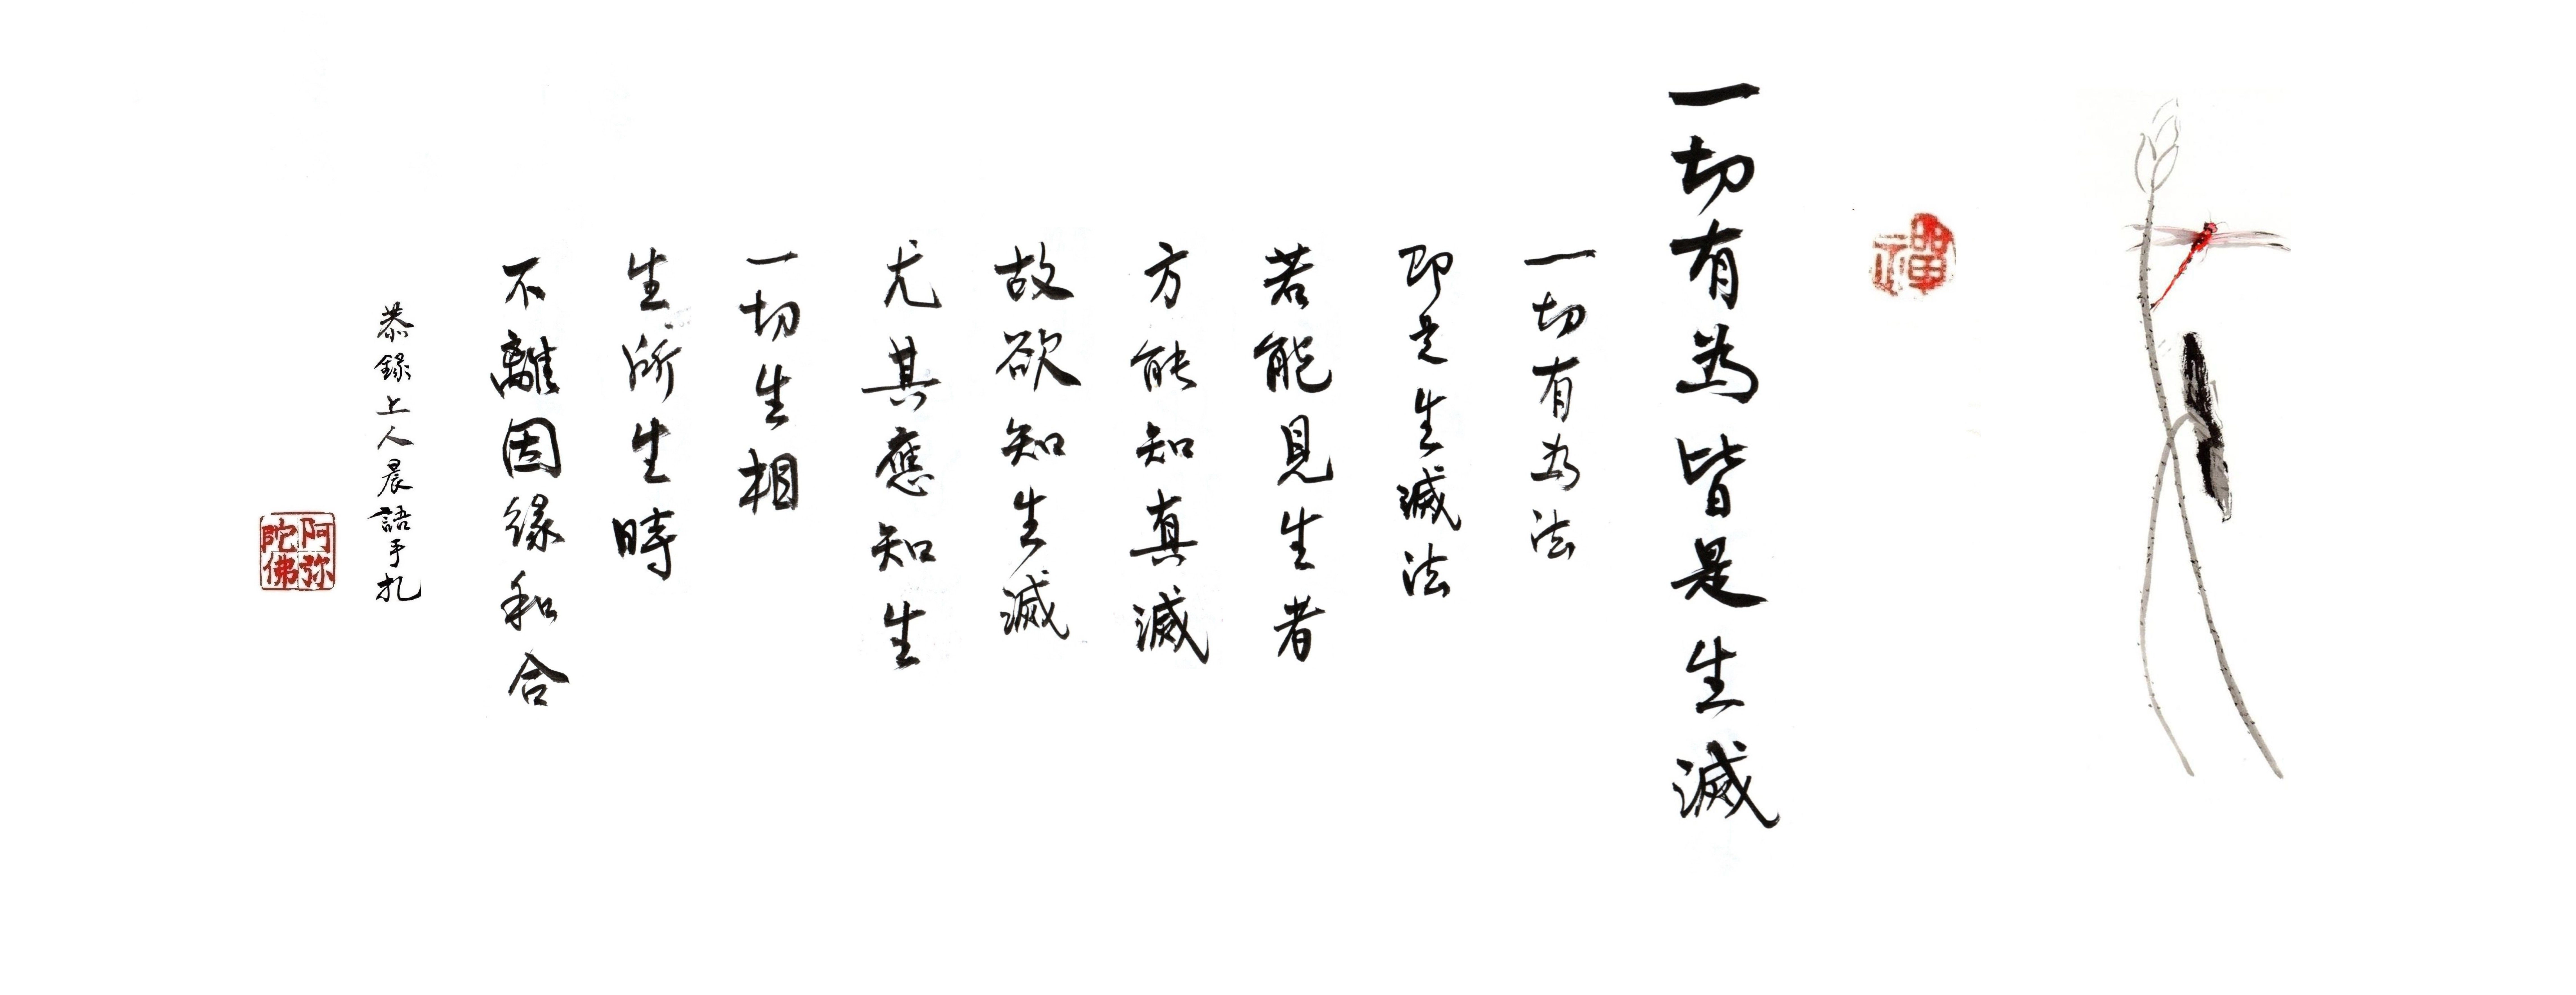 禪
一切有為皆是生滅
一切有为法
即是生滅法
若能見生者
方能知真滅
故欲知生滅
尤其應知生
一切生相
生所生時
不離因緣和合
恭錄上人晨語手扎
阿弥陀佛